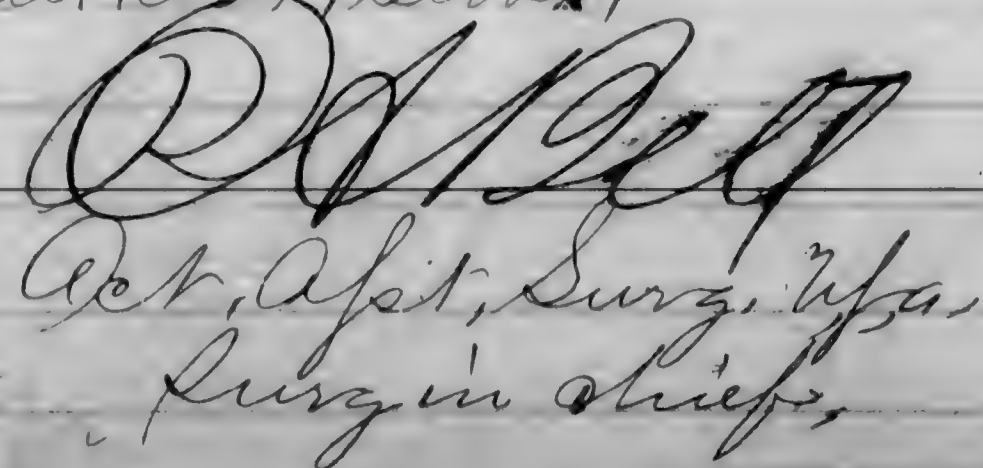 Bell
Act, Asst, Surg. U.S.a,
Surg in Chief,